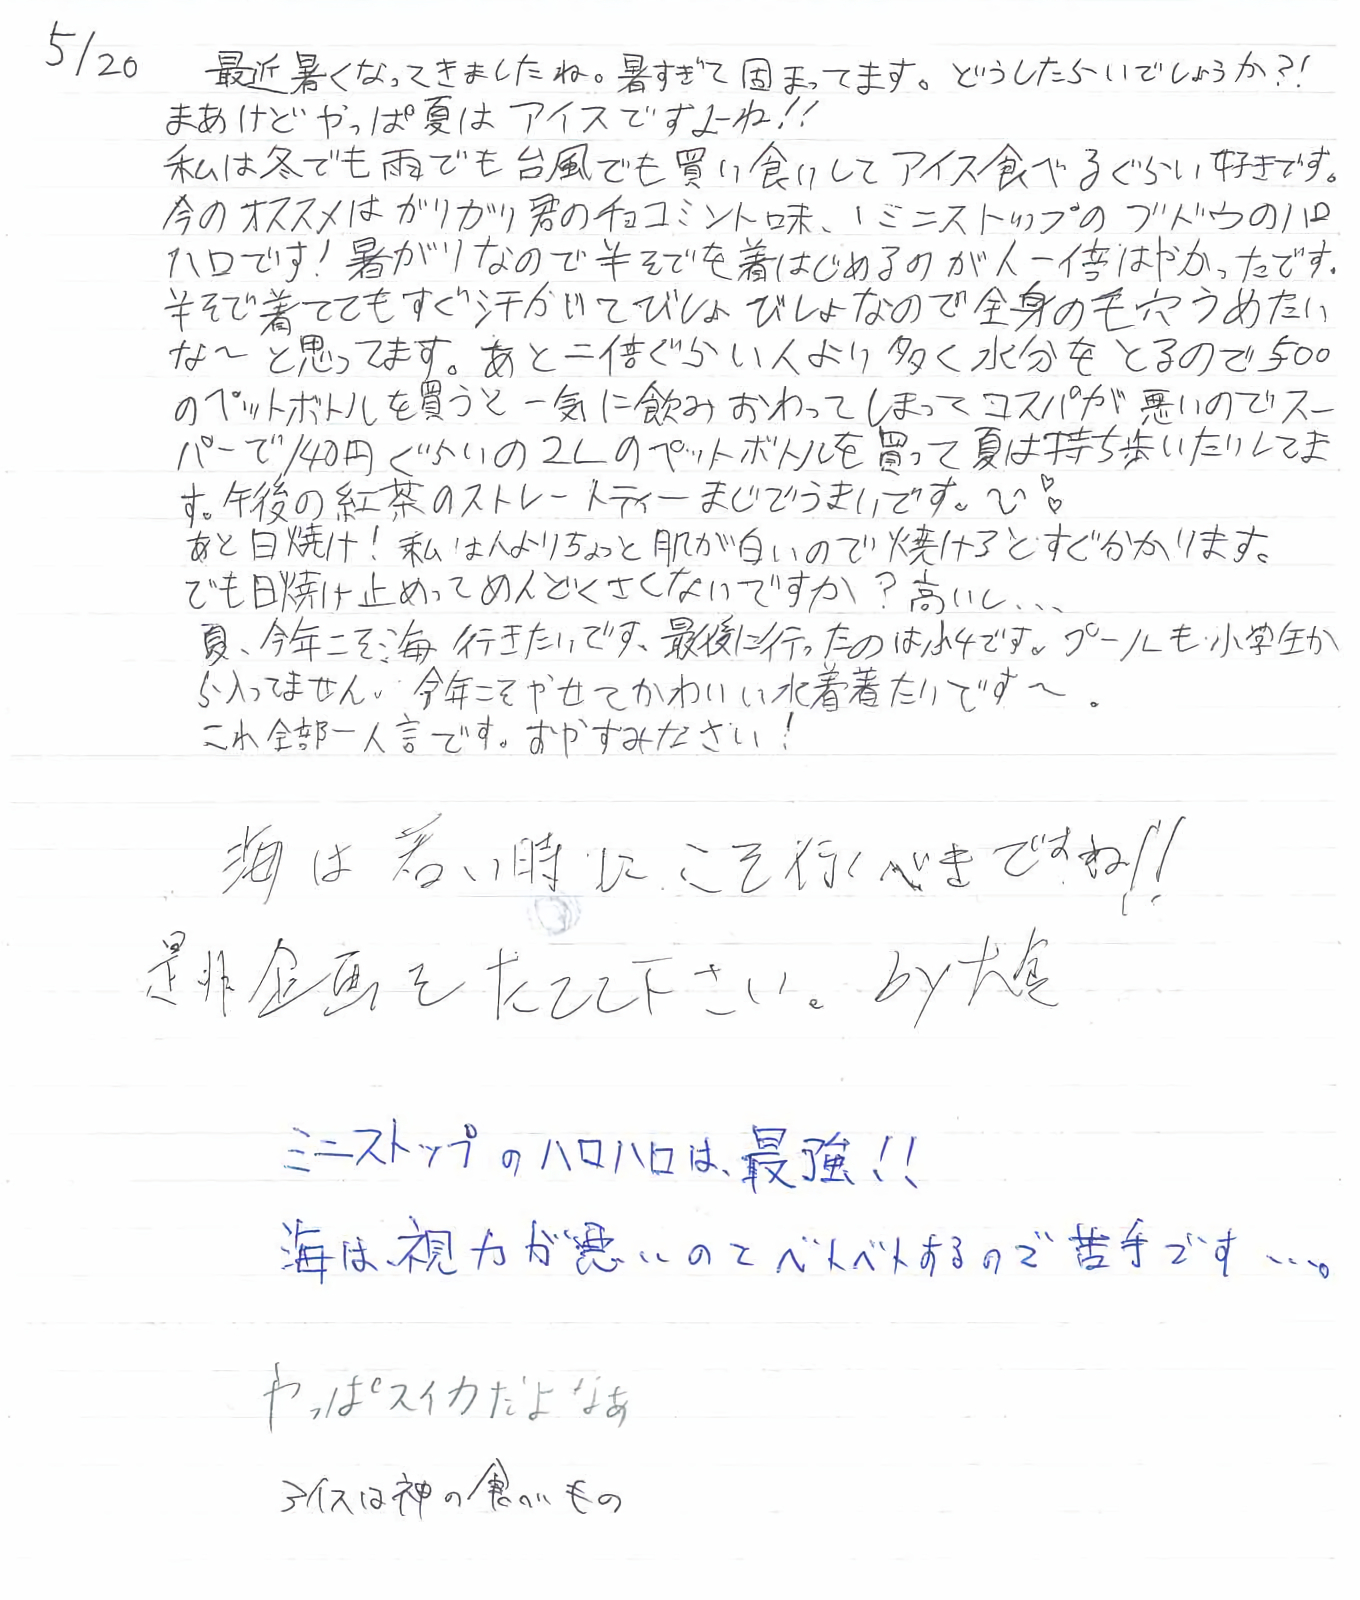 5/20 最近暑くなってきましたね。暑すぎて固まってます。どうしたらいいでしょうか?!
まあけどやっぱ夏はアイスですよーね!!
私は冬でも雨でも台風でも買い食いしてアイス食べるぐらい好きです。
今のオススメはガリガリ君のチョコミント味、ミニストップのブドウのハロ
ハロです!暑がりなので半そでを着はじめるのが人一倍はやかったです。
半そで着ててもすぐ汗がでてびしょびしょなので全身の毛穴うめたい
な〜と思ってます。あと二倍ぐらい人より多く水分をとるので500
のペットボトルを買うと一気に飲みおわってしまってコスパが悪いのでスー
パーで140円ぐらいの2Lのペットボトルを買って夏は持ち歩いたりしてま
す。午後の紅茶のストレートティーまじでうまいです。
あと日焼け!私は人よりちょっと肌が白いので焼けるとすぐ分かります。
でも日焼け止めってめんどくさくないですか?高いし、、、
夏、今年こそ海行きたいです、最後に行ったのは小4です。プールも小学生か
ら入ってません。今年こそやせてかわいい水着着たいです〜。
これ全部一人言です。おやすみなさい!
海は若い時にこそ行くべきですね!!
是非企画をたてて下さい。by大
ミニストップのハロハロは、最強!!
海は、視力が悪いのとベトベトするので苦手です…。
やっぱスイカだよなあ
アイスは神の食べもの